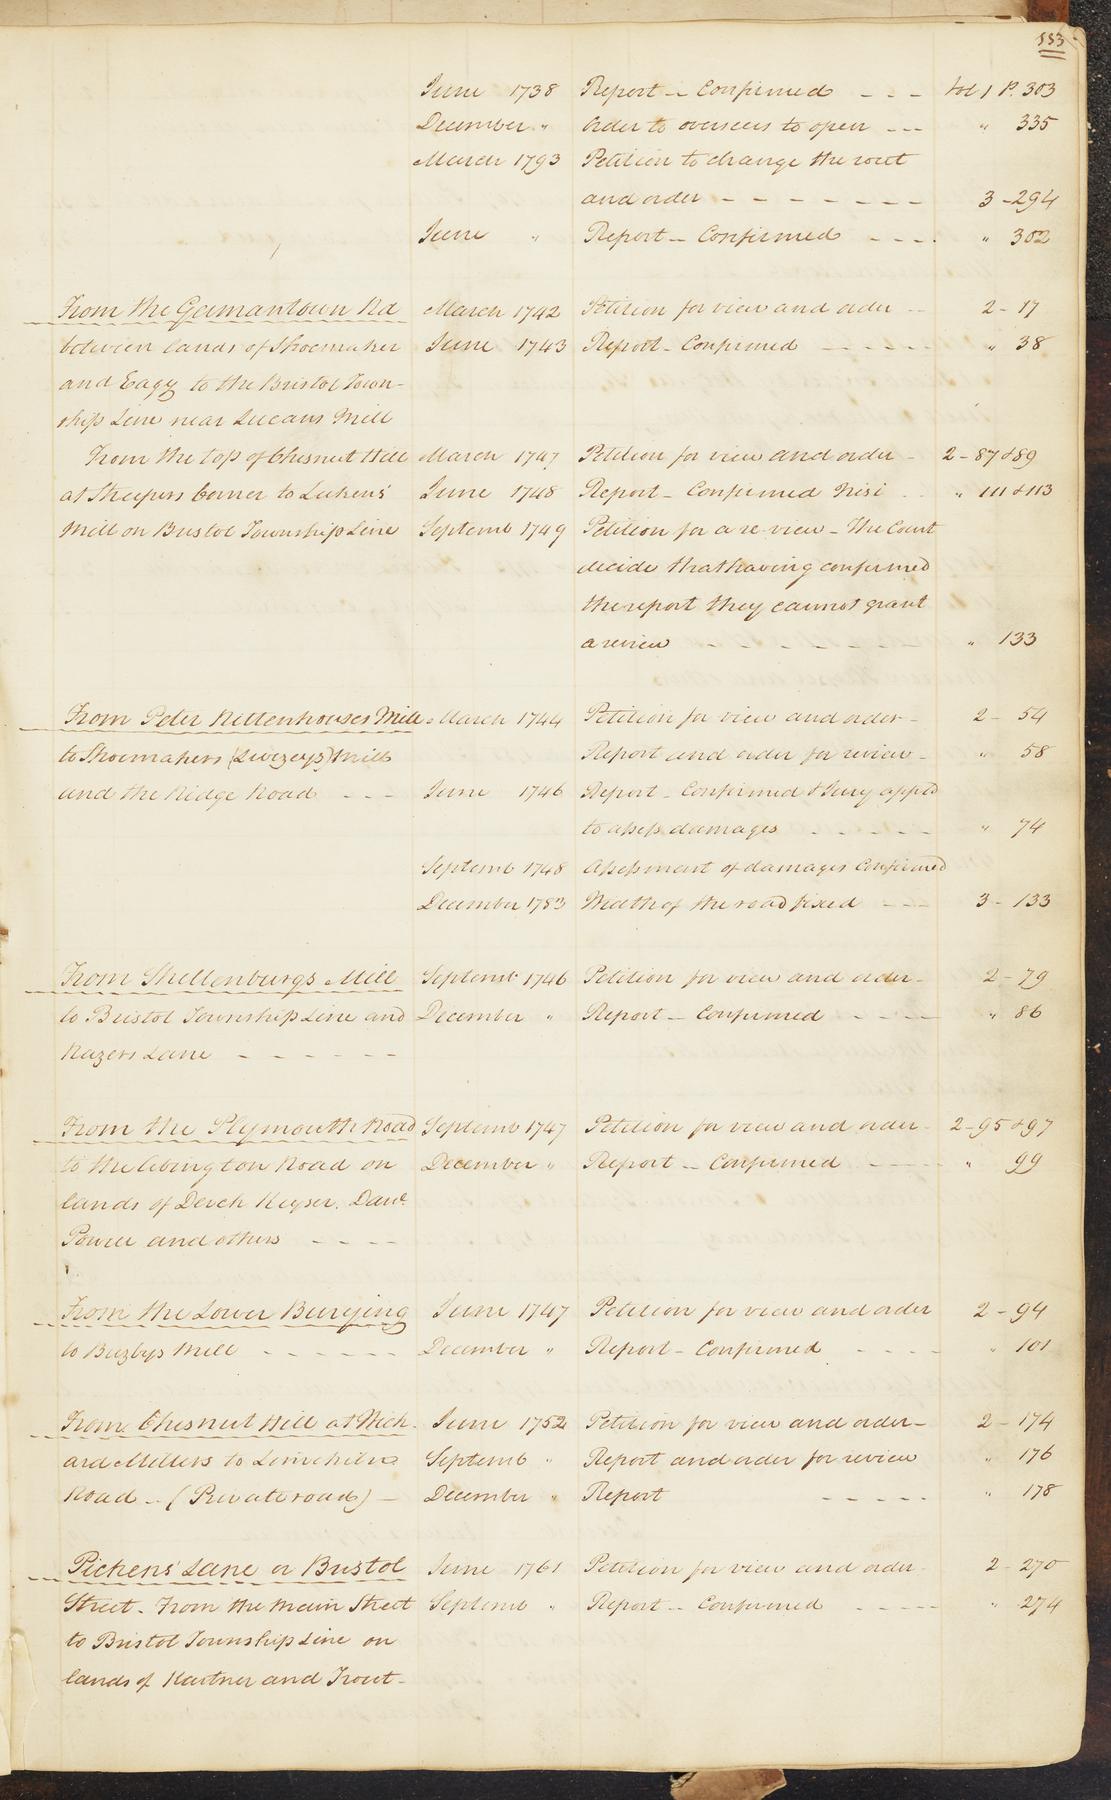 553
June 1738 Report - Confirmed - - - Vol 1 P. 303
December " Order to overseers to open - - - " 335
March 1793 Petition to change the rout
and order - - - - - - - - 3 - 294
June " Report - Confirmed - - - . " 302
From the Germantown Rd March 1742 Petition for view and order - - 2 - 17
between lands of Shoemaker June 1743 Report - Confirmed - - - - - " 38
and Eagy to the Bristol Town-
ship Line near Lucans Mill
From the top of Chesnut Hill March 1747 Petition for view and order - 2 - 87 & 89
at Sheepers Corner to Lukens' June 1748 Report - Confirmed Nisi - - " 111 & 113
Mill on Bristol Township Line Septemb 1749 Petition for a re-view - The Court
decide that having confirmed
the report they cannot grant
a review - - - - - - - " 133
From Peter Rittenhouses Mill March 1744 Petition for view and order - 2 - 54
to Shoemakers (Livezeys) Mill Report and order for review - " 58
and the Ridge Road - - - June 1746 Report - Confirmed & Jury appd
to assess damages - - - - - " 74
Septemb 1748 Assessment of damages Confirmed
December 1783 Width of the road fixed - - - 3 - 133
From Shellenburgs Mill Septemb 1746 Petition for view and order - 2 - 79
to Bristol Township Line and December " Report - Confirmed - - - - " 86
Razers Lane - - - - - -
From the Plymouth Road Septemb 1747 Petition for view and order - 2 - 95 & 97
to the Abington Road on December " Report - Confirmed - - - - " 99
lands of Derch Keyser, Danl
Powell and others - - - -
From the Lower Burying June 1747 Petition for view and order 2 - 94
to Buzbys Mill - - - - - - December " Report - Confirmed - - - - " 101
From Chesnut Hill at Rich- June 1752 Petition for view and order - 2 - 174
ard Millers to Limekiln Septemb " Report and order for review " 176
Road - (Private road) - December " Report - - - - - " 178
Pickens' Lane or Bristol June 1761 Petition for view and order - 2 - 270
Street - From the Main Street Septemb " Report - Confirmed - - - - - " 274
to Bristol Township Line on
lands of Kastner and Trout -